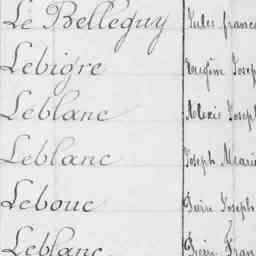 Le Belleguy Jules
Lebigre Eugène Joseph
Leblanc Alexis Joseph
Leblanc Joseph Marie
Lebouc Pierre Joseph
Leblanc Pierre